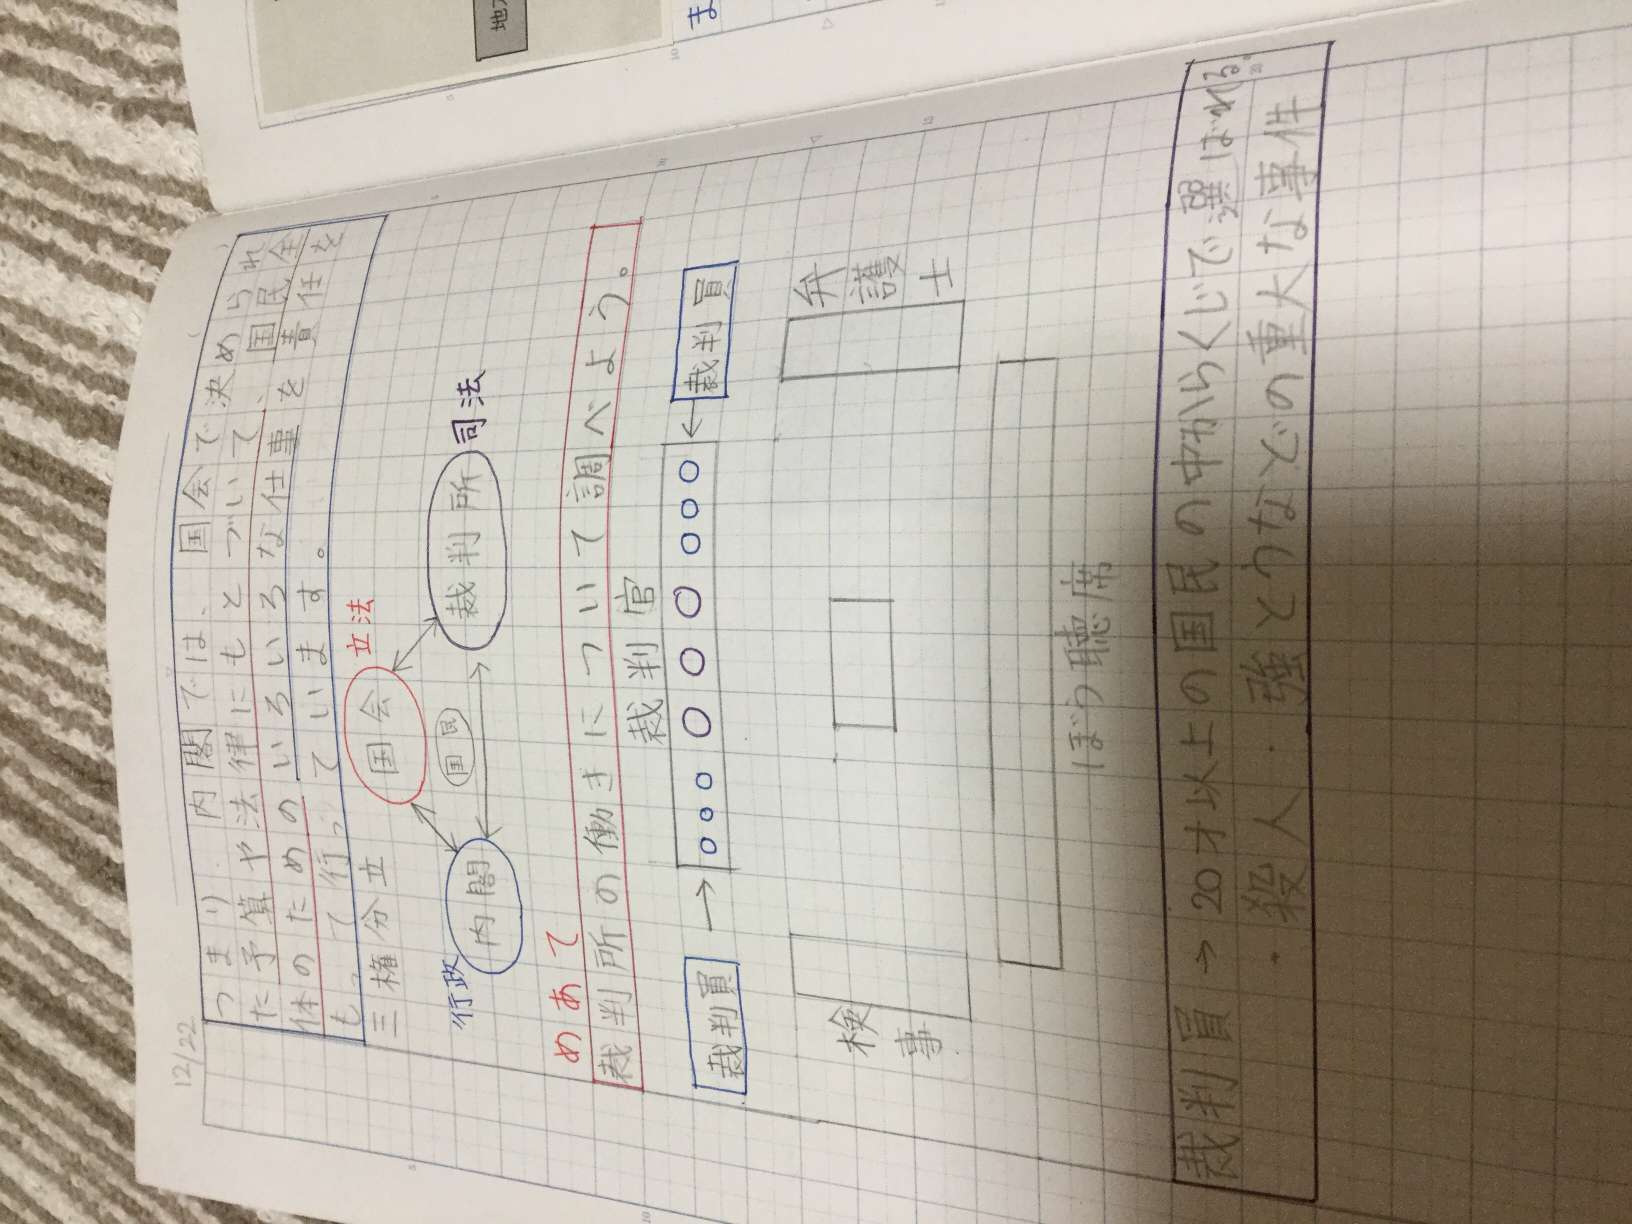 12/22
つまり、内閣では、国会で決められ
た予算や法律にもとづいて、国民全
体のためのいろいろな仕事を責任を
もって行っています。
三権分立
立法
国会
行政
内閣
国民
裁判所
司法
めあて
裁判所の働きについて調べよう。
裁判官
裁判員
→
←
裁判員
検事
弁護士
ぼう聴席
裁判員→20才以上の国民の中からくじで選ばれる。
・殺人・強とうなどの重大な事件